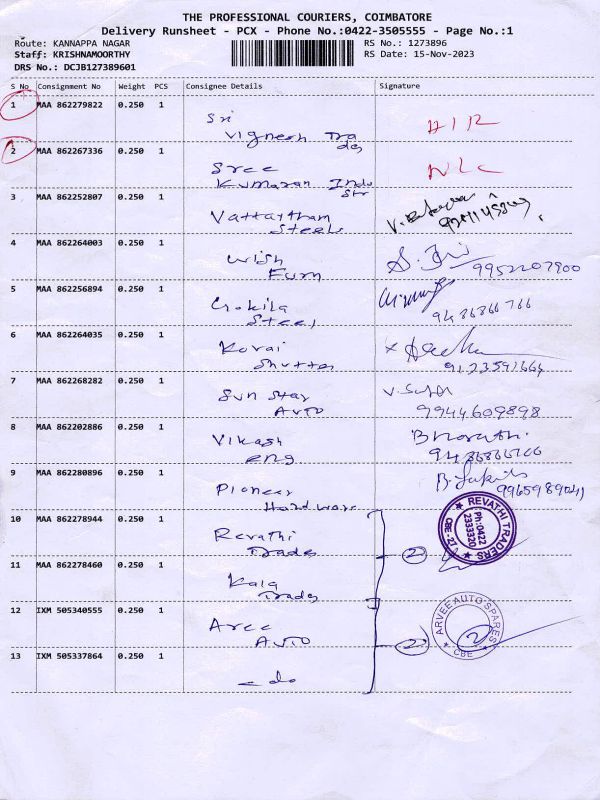 THE PROFESSIONAL COURIERS, COIMBATORE
Delivery Runsheet - PCX - Phone No.:0422-3505555 - Page No.:1
Route: KANNAPPA NAGAR
RS No.: 1273896
Staff: KRISHNAMOORTHY
RS Date: 15-Nov-2023
DRS No.: DCJB127389601
S No Consignment No Weight PCS Consignee Details Signature
1 MAA 862279822 0.250 1
Sri
Vignesh Tra
des
2 MAA 862267336 0.250 1
Sree
Kumaran Indu
Str
NLC
3 MAA 862252807 0.250 1
Vattartham
Steels
4 MAA 862264003 0.250 1
Wish
Furn
9952207900
5 MAA 862256894 0.250 1
Gokila
Steel
9486866766
6 MAA 862264035 0.250 1
Kovai
Shutter
9123591664
7 MAA 862268282 0.250 1
Sun Star
Auto
9944609898
8 MAA 862202886 0.250 1
Vikash
eng
Bharathi
9486866766
9 MAA 862280896 0.250 1
Pioneer
Hardware
9965989041
10 MAA 862278944 0.250 1
Revathi
Trades
2
REVATHI TRADERS
Ph:0422
2333320
CBE-27
11 MAA 862278460 0.250 1
Kala
Trades
12 IXM 505340555 0.250 1
Arvee
Auto
2
ARVEE AUTO SPARES
CBE
2
13 IXM 505337864 0.250 1
- do